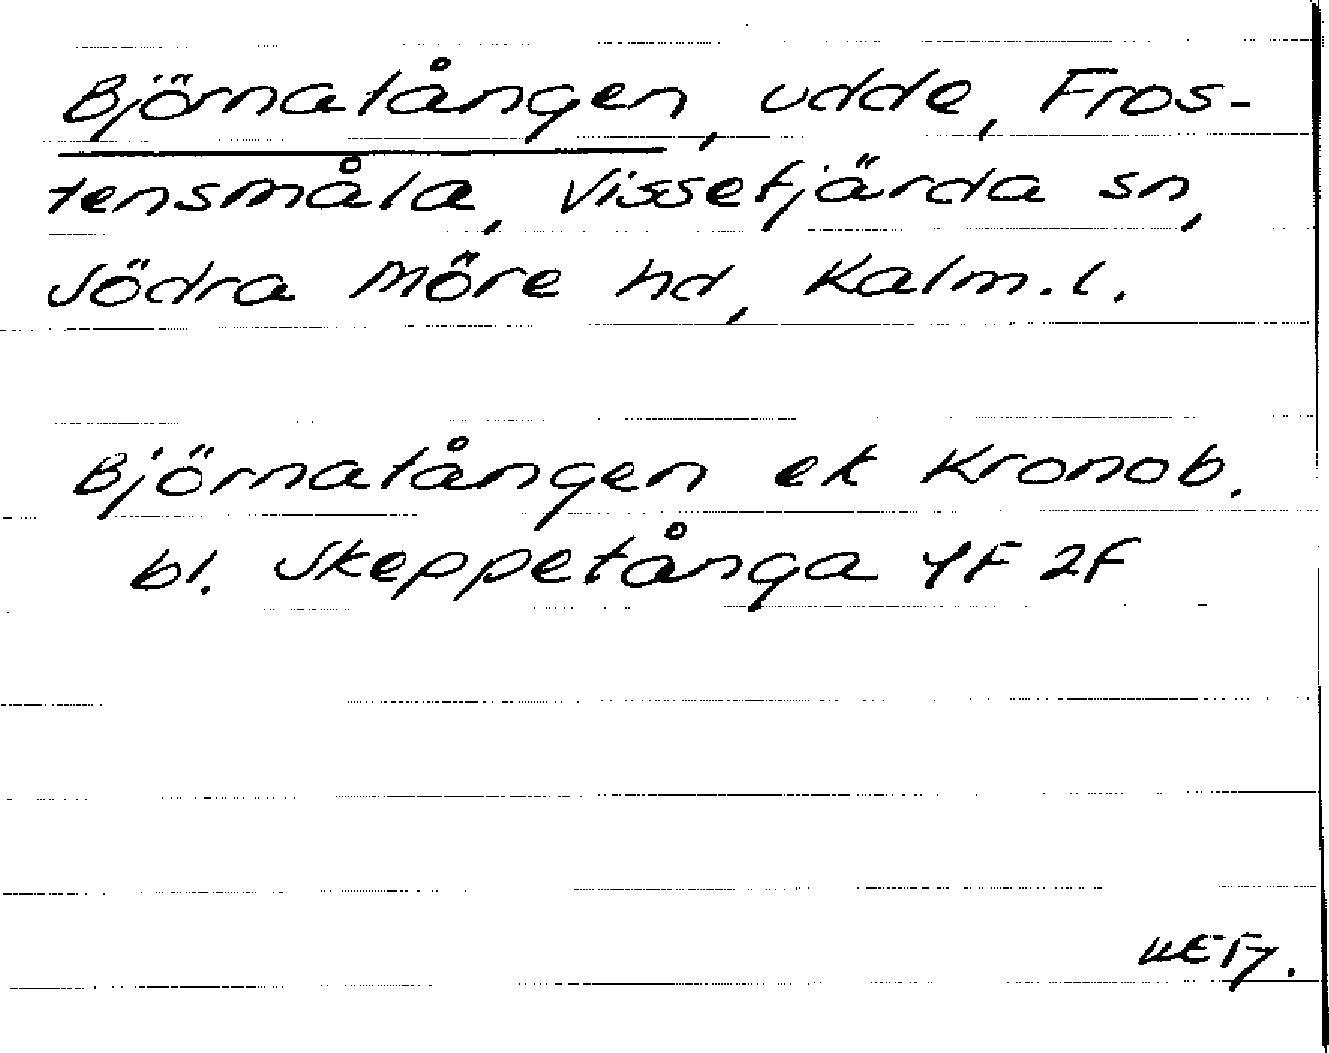 Björnatången, udde, Fros-
tensmåla, Vissefjärda sn,
Södra Möre hd, Kalm.l.
Björnatången ek Kronob.
bl. Skeppetånga 4F 2f